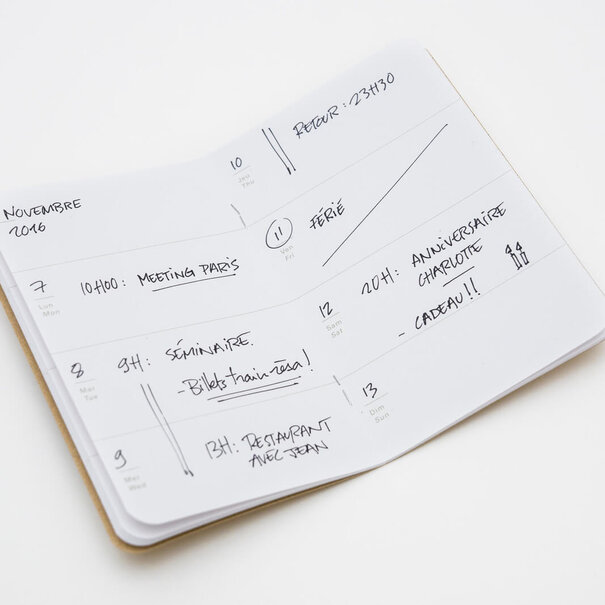 NOVEMBRE
2016
7
Lun
Mon
10H00: MEETING PARIS
8
Mar
Tue
9H: SÉMINAIRE.
- Billets train résa!
9
Mer
Wed
13H: RESTAURANT
AVEC JEAN
10
Jeu
Thu
RETOUR: 23H30
11
Ven
Fri
FÉRIÉ
12
Sam
Sat
20H: ANNIVERSAIRE
CHARLOTTE
- CADEAU!!
13
Dim
Sun